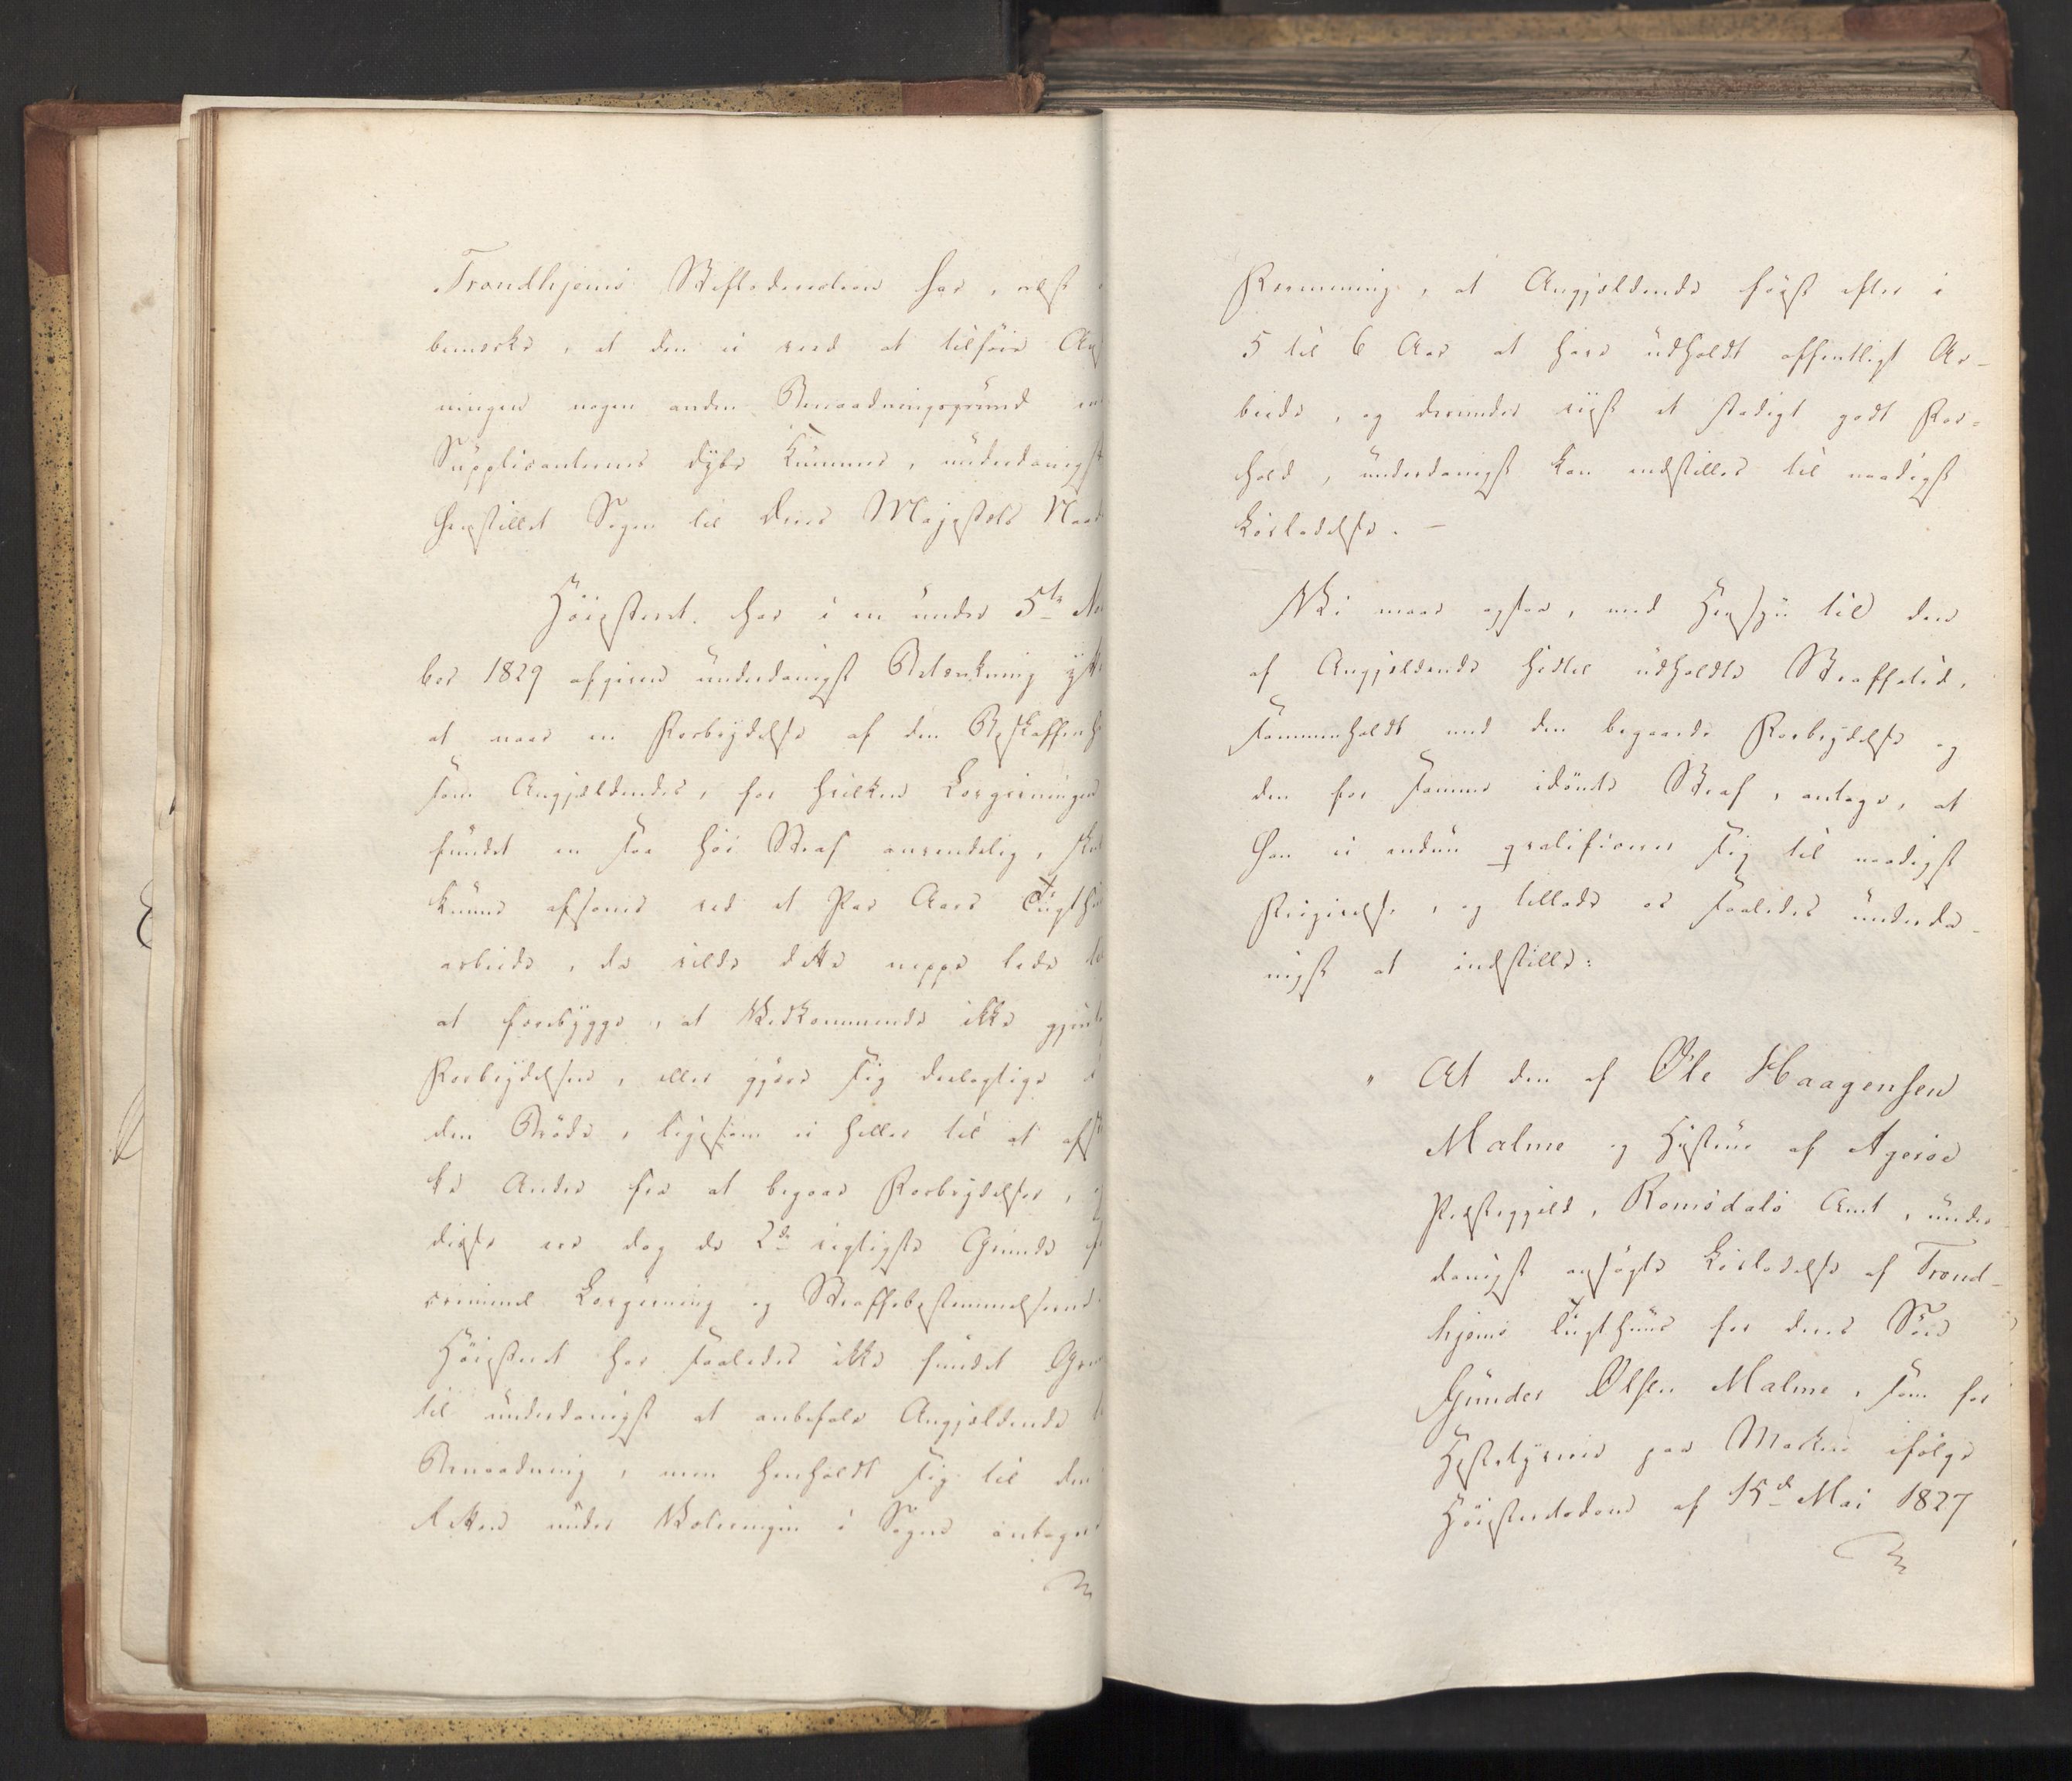 Trondhjems Stiftsdirection har, næst
bemærke, at den ei veed at tilføie An
ningen nogen anden Benaadningsgrund en
Supplicanternes dybe Kummer, underdanigst
henstillet Sagen til Deres Majestæts Naade
Høiesteret har i en under 5te No
ber 1829 afgiven underdanigst Betænkning ytt
at naar en Forbrydelse af den Beskaffenh
som Angjældendes, for hvilken Lovgivningen
fundet en saa høi Straf anvendelig, skul
kunne afsones ved et Par Aars Tugthuus
arbeide, da vilde dette neppe lede til
at forebygge, at Vedkommende ikke gjent
Forbrydelsen, eller gjøre sig deelagtige i
den Brøde, ligesom ei heller til at afsk
ke Andre fra at begaae Forbrydelser, og
disse ere dog de 2de vigtigste Grunde f
criminel Lovgivning og Straffebestemmelserne.
Høiesteret har saaledes ikke fundet Grun
til underdanigst at anbefale Angjældende t
Benaadning, men henholdt sig til den
Retten under Voteringen i Sagen antagne
Formening, at Angjældende først efter i
5 til 6 Aar at have udholdt offentligt Ar-
beide, og derunder viist et stadigt godt For-
hold, underdanigst kan indstilles til naadigst
Løsladelse. -
Vi maae ogsaa, med Hensyn til den
af Angjældende hidtil udholdte Straffetid,
sammenholdt med den begaaede Forbrydelse og
den for samme idømte Straf, antage, at
han ei endnu qvalificerer sig til naadigst
Frigivelse, og tillade os saaledes underda-
nigst at indstille:
" At den af Ole Haagensen
Malme og Hustrue af Agerøe
Præstegjeld, Romsdals Amt, under-
danigst ansøgte Løsladelse af Trond-
hjems Tugthuus for deres Søn
Gunder Olsen Malme, som for
Hestetyverie paa Marken ifølge
Høiesteretsdom af 15d Mai 1827